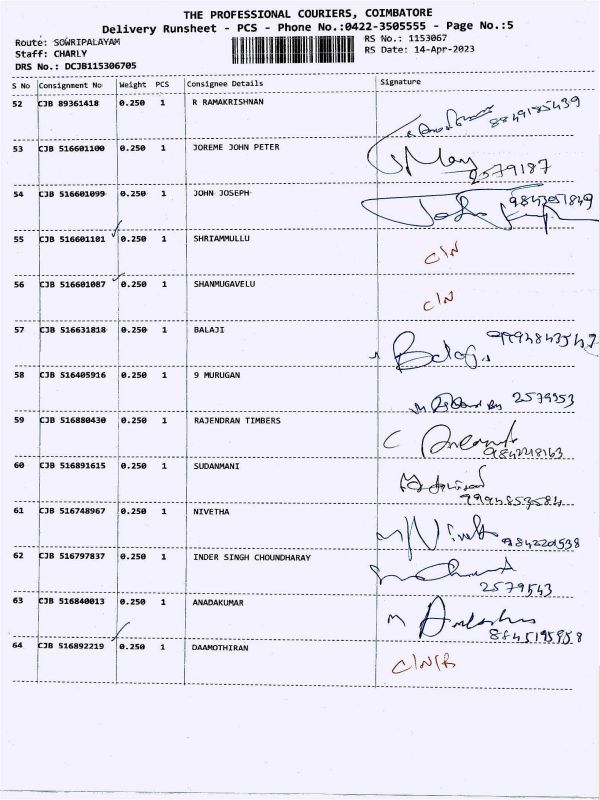 THE PROFESSIONAL COURIERS, COIMBATORE
Delivery Runsheet - PCS - Phone No.:0422-3505555 - Page No.:5
Route: SOWRIPALAYAM
RS No.: 1153067
Staff: CHARLY
RS Date: 14-Apr-2023
DRS No.: DCJB115306705
S No Consignment No Weight PCS Consignee Details Signature
52 CJB 89361418 0.250 1 R RAMAKRISHNAN 8849185439
53 CJB 516601100 0.250 1 JOREME JOHN PETER 2579187
54 CJB 516601099 0.250 1 JOHN JOSEPH John 9843051849
55 CJB 516601101 0.250 1 SHRIAMMULLU C/N
56 CJB 516601087 0.250 1 SHANMUGAVELU C/N
57 CJB 516631818 0.250 1 BALAJI Balaji
58 CJB 516405916 0.250 1 9 MURUGAN 2579353
59 CJB 516880430 0.250 1 RAJENDRAN TIMBERS 9842218163
60 CJB 516891615 0.250 1 SUDANMANI 9994853584
61 CJB 516748967 0.250 1 NIVETHA 9842201538
62 CJB 516797837 0.250 1 INDER SINGH CHOUNDHARAY 2579543
63 CJB 516840013 0.250 1 ANADAKUMAR 8845195958
64 CJB 516892219 0.250 1 DAAMOTHIRAN C/N/R